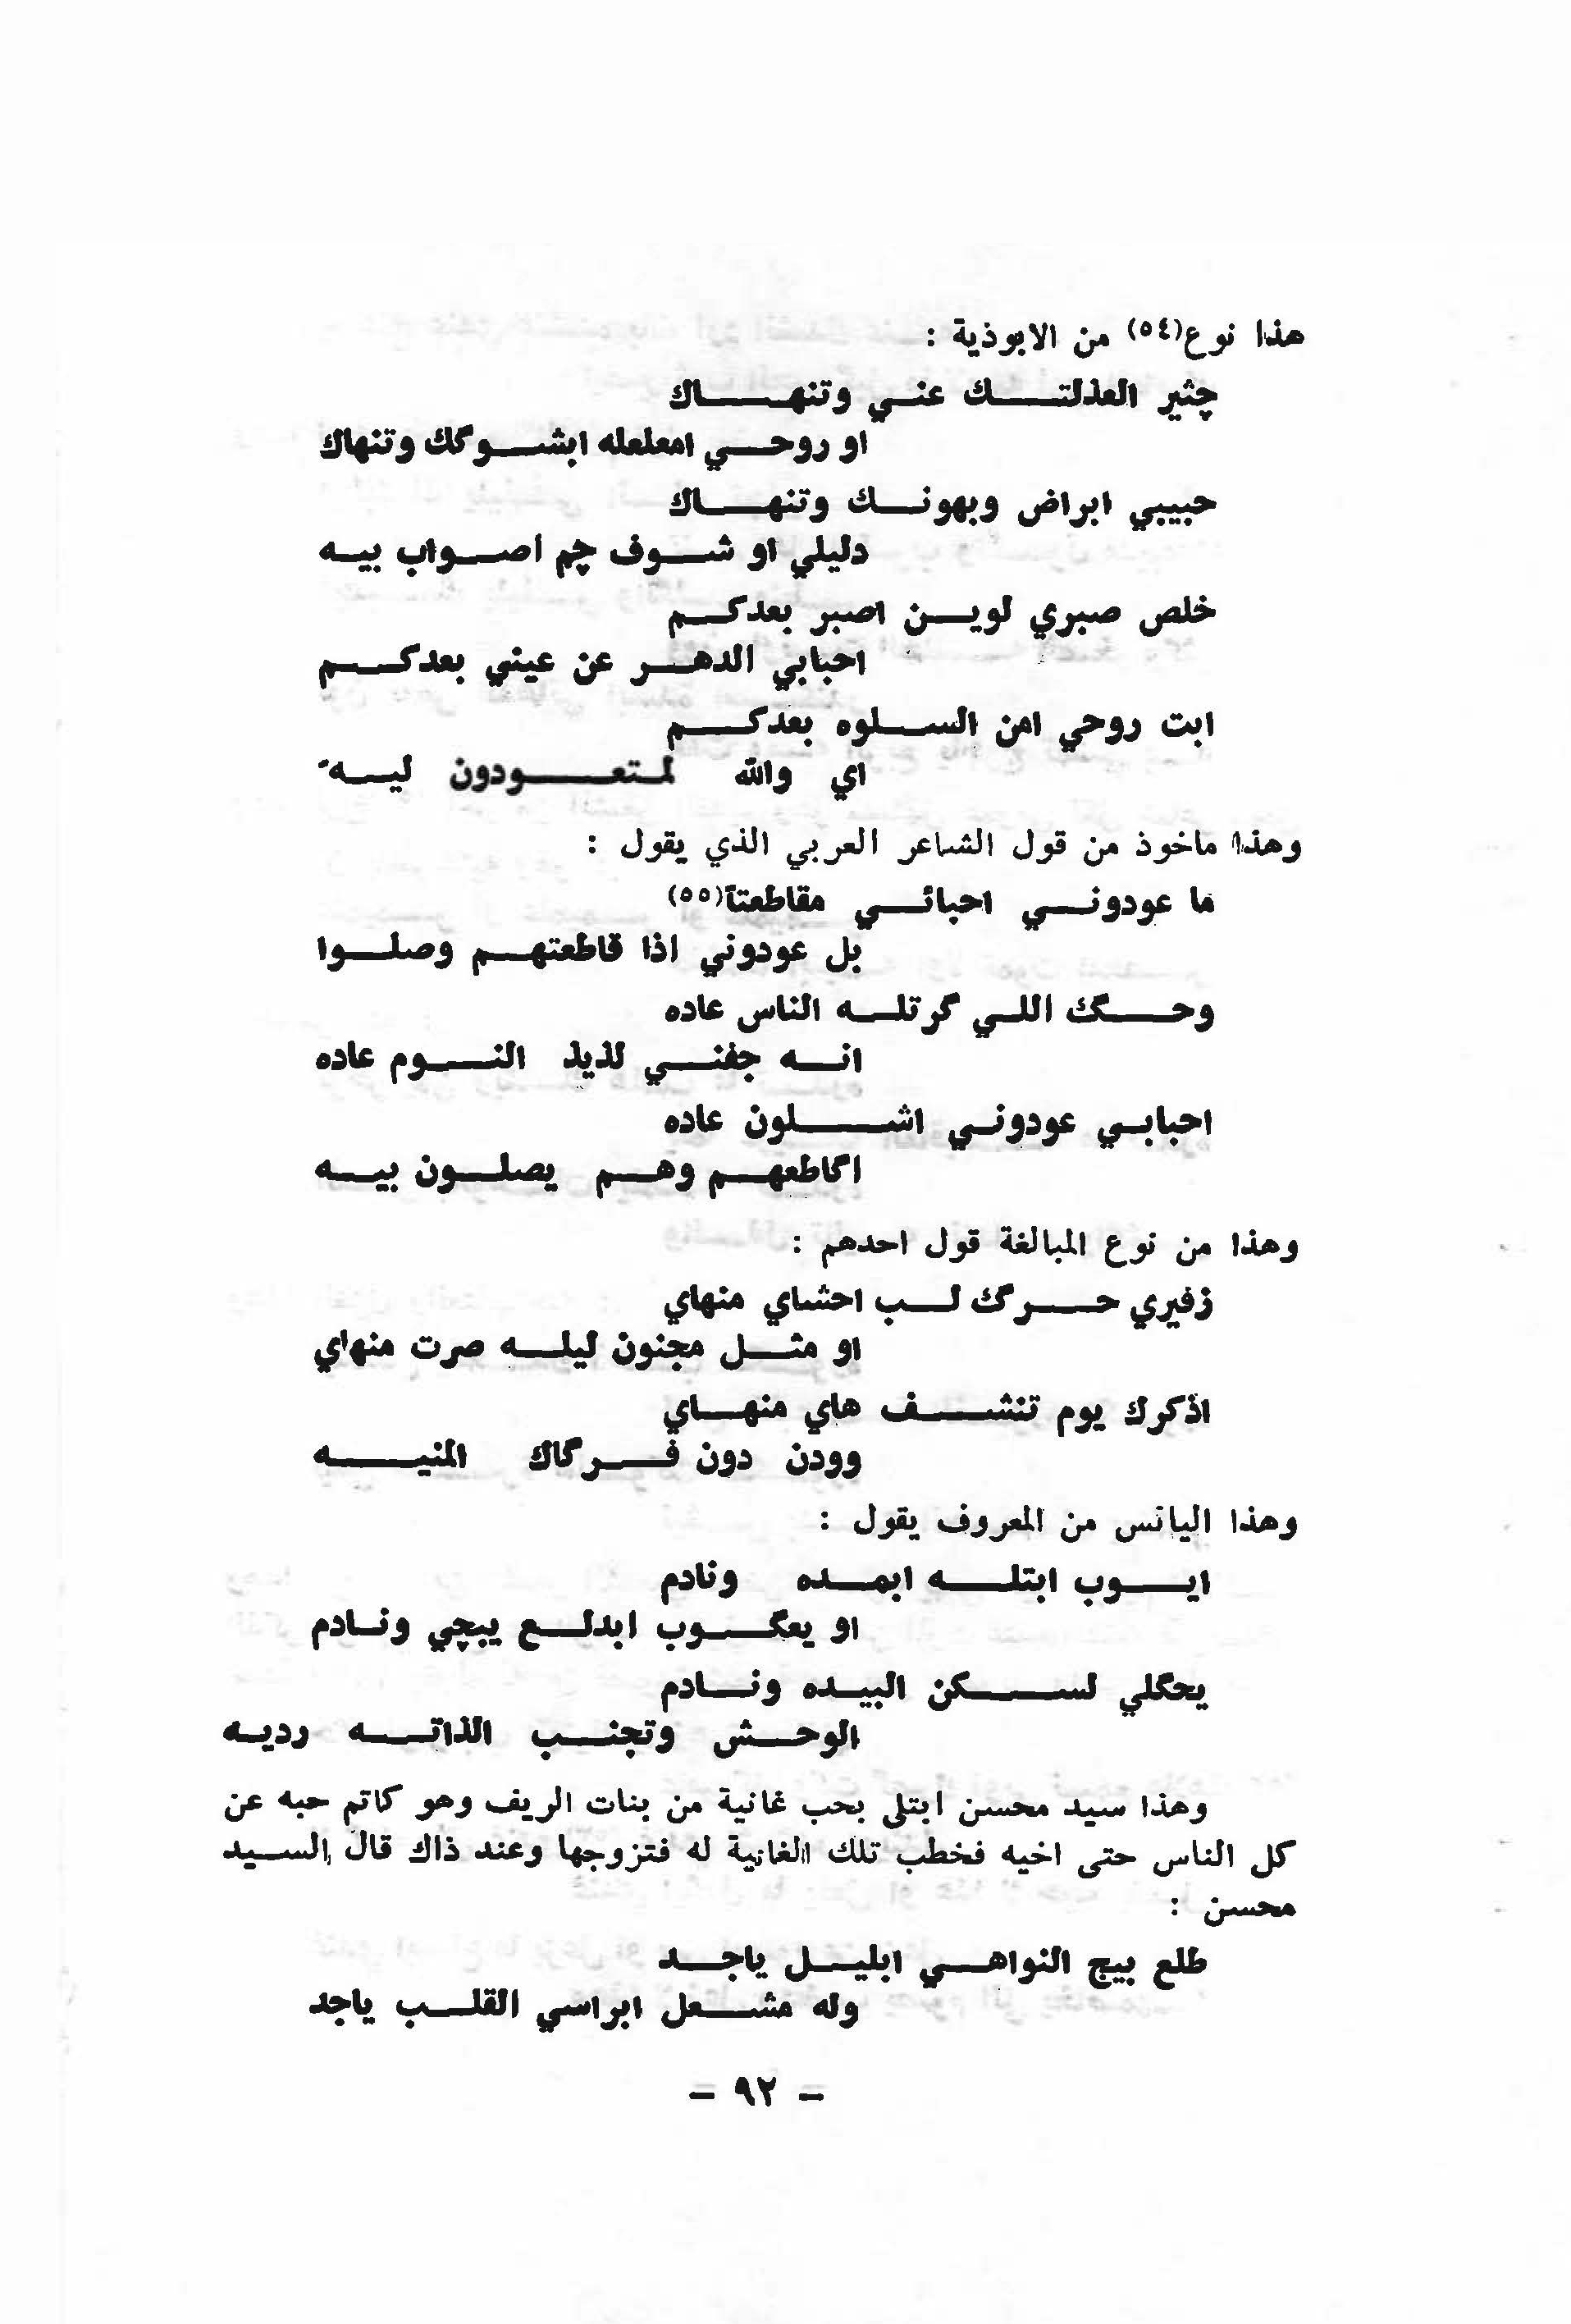 هذا نوع(٥٤) من الابوذية :
چثير العذلتك عني وتنهاك
او روحي امعلعله ابشوگك وتنهاك
حبيبي ابراض وبهونك وتنهاك
دليلي او شوف چم اصواب بيه
خلص صبري لوين اصبر بعدكم
احبابي الدهر عن عيني بعدكم
ابت روحي امن السلوه بعدكم
اي والله لمتعودون ليه
وهذا ماخوذ من قول الشاعر العربي الذي يقول :
ما عودوني احبائي مقاطعتاً(٥٥)
بل عودوني اذا قاطعتهم وصلوا
وحگك اللي گرتله الناس عاده
انه جفني لذيذ النوم عاده
احبابي عودوني اشلون عاده
اگاطعهم وهم يصلون بيه
وهذا من نوع المبالغة قول احدهم :
زفيري حرگ لب احشاي منهاي
او مثل مجنون ليله صرت منهاي
اذكرك يوم تنشف هاي منهاي
وودن دون فرگاك المنيه
وهذا اليائس من المعروف يقول :
ايوب ابتله ابمده ونادم
او يعگوب ابدلع يبچي ونادم
يحگلي لسكن البيده ونادم
الوحش وتجنب الذاته رديه
وهذا سيد محسن ابتلى بحب غانية من بنات الريف وهو كاتم حبه عن
كل الناس حتى اخيه فخطب تلك الغانية له فتزوجها وعند ذاك قال السيد
محسن :
طلع بيج النواهي ابليل ياجد
وله مشعل ابراسي القلب ياجد
- ٩٢ -